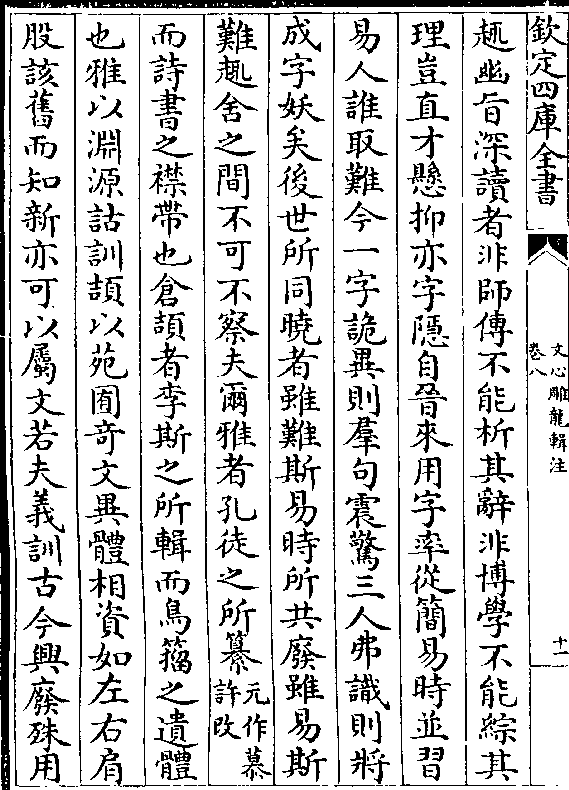 欽定四庫全書
文心雕龍輯注
卷八
十一
趣幽旨深讀者非師傳不能析其辭非博學不能綜其
理豈直才懸抑亦字隱自晉來用字率從簡易時並習
易人誰取難今一字詭異則羣句震驚三人弗識則將
成字妖矣後世所同曉者雖難斯易時所共廢雖易斯
難趣舍之間不可不察夫爾雅者孔徒之所纂元作慕許改
而詩書之襟帶也倉頡者李斯之所輯而鳥籀之遺體
也雅以淵源詁訓頡以苑囿奇文異體相資如左右肩
股該舊而知新亦可以屬文若夫義訓古今興廢殊用